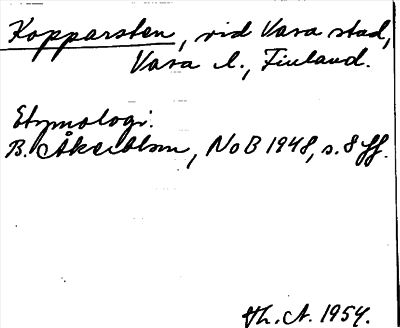 Kopparsten, vid Vasa stad,
Vasa l., Finland.
Etymologi:
B. Åkerblom, NoB 1948, s. 8 ff.
Th. A. 1954.